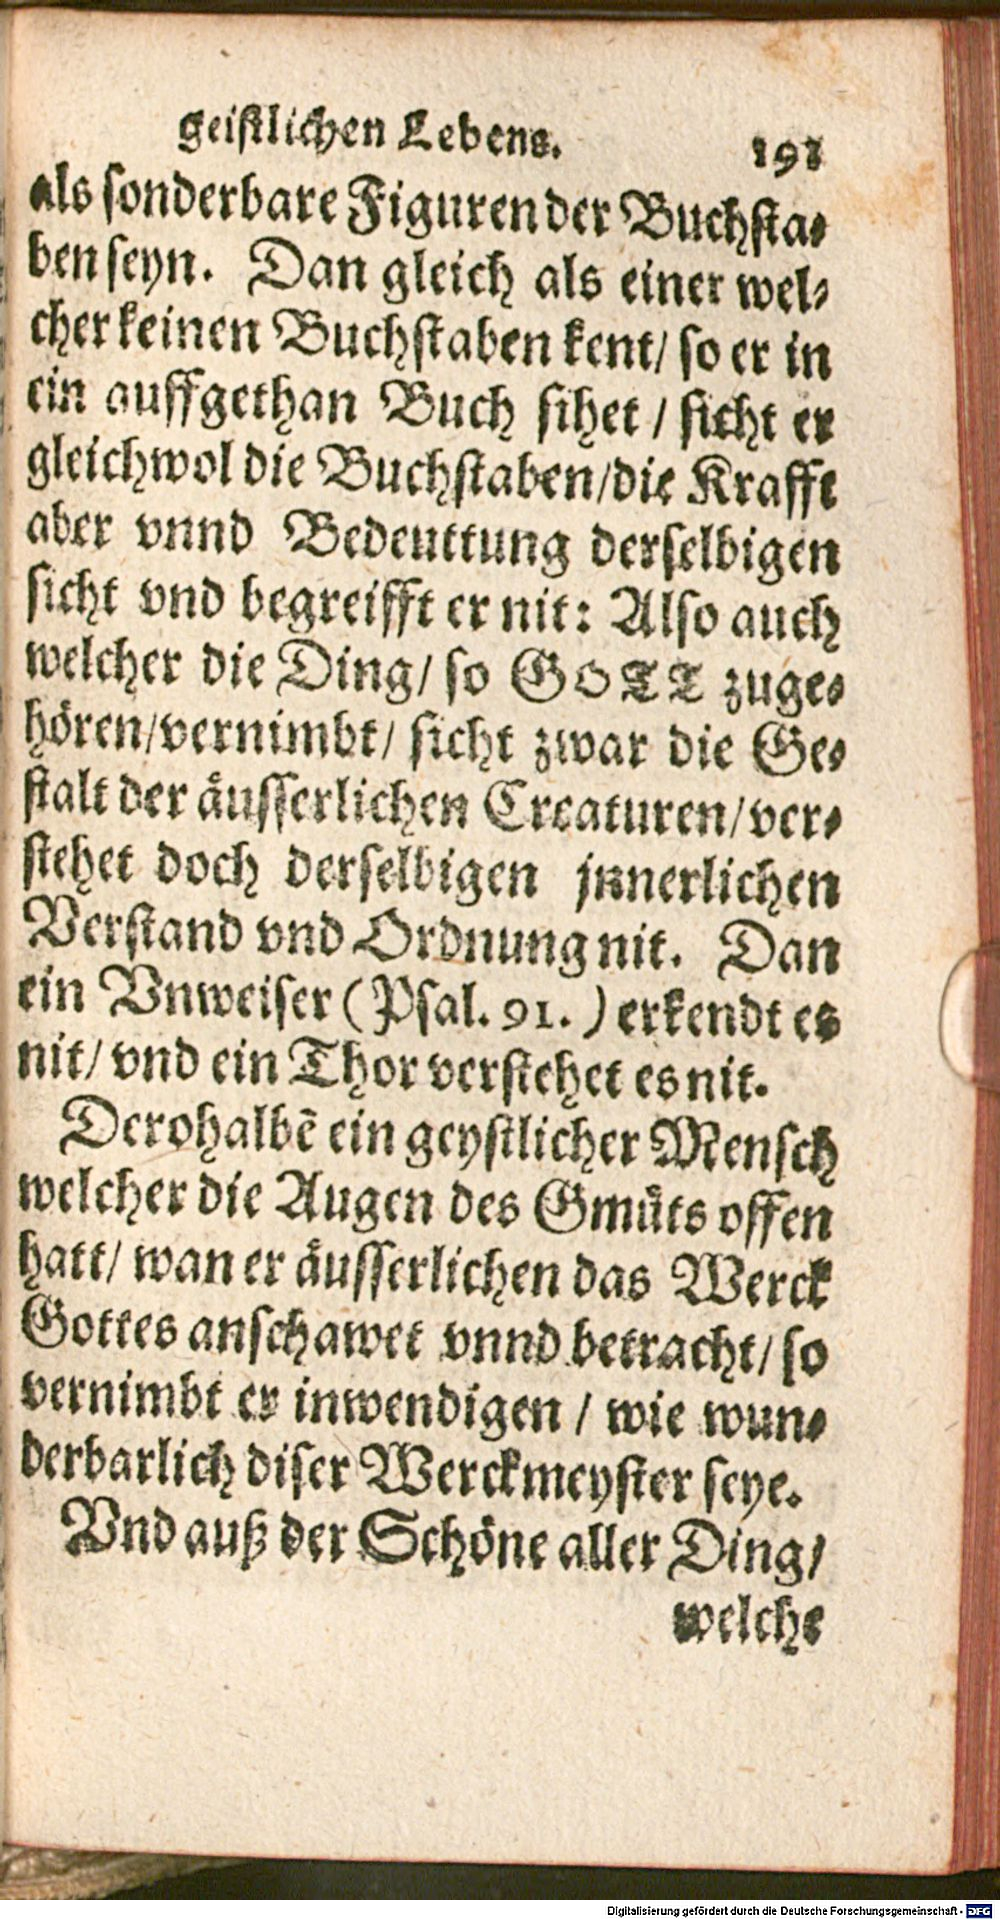 geistlichen Lebens. 191
als sonderbare Figuren der Buchsta-
ben seyn. Dan gleich als einer wel-
cher keinen Buchstaben kent/ so er in
ein auffgethan Buch sihet / sicht er
gleichwol die Buchstaben/die Krafft
aber vnnd Bedeuttung derselbigen
sicht vnd begreifft er nit: Also auch
welcher die Ding/ so GOTT zuge-
hören/vernimbt/ sicht zwar die Ge-
stalt der äusserlichen Creaturen/ver-
stehet doch derselbigen jnnerlichen
Verstand vnd Ordnung nit. Dan
ein Vnweiser (Psal. 91.) erkendt es
nit/ vnd ein Thor verstehet es nit.
Derohalbē ein geystlicher Mensch
welcher die Augen des Gmüts offen
hatt/ wan er äusserlichen das Werck
Gottes anschawet vnnd betracht/ so
vernimbt er inwendigen / wie wun-
derbarlich diser Werckmeyster seye.
Vnd auß der Schöne aller Ding/
welche
Digitalisierung gefördert durch die Deutsche Forschungsgemeinschaft - DFG